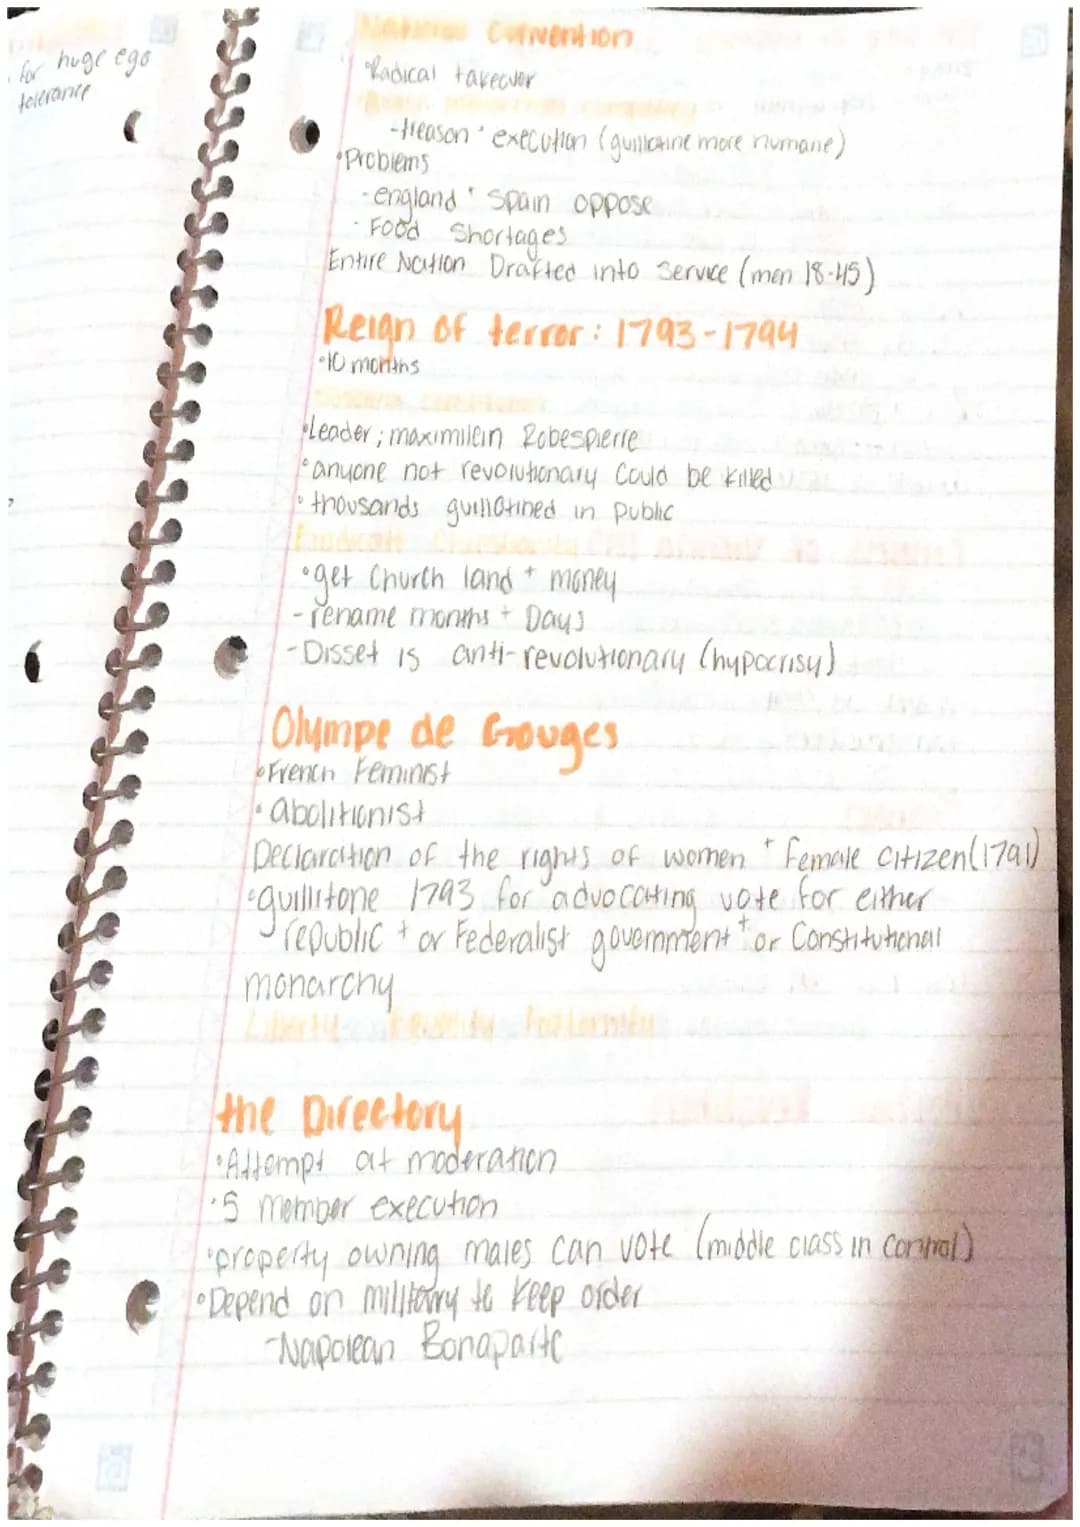 for huge ego
tolerance
National Convention
•Radical takeover
-treason • execution (guillotine more humane)
•Problems
-england • Spain oppose
- Food Shortages
Entire Nation Drafted into Service (men 18-45)
Reign of terror: 1793-1794
•10 months
•Leader; maximilein Robespierre
•anyone not revolutionary Could be killed
•thousands guillotined in public
Eradicate Christianity
•get Church land + money
-rename months + Days
-Disset is anti-revolutionary (hypocrisy)
Olympe de Gouges
•French Feminist
•abolitionist
Declaration of the rights of women + Female citizen(1791)
•guillitone 1793 for advocating vote for either
republic + or Federalist government + or Constitutional
monarchy
Liberty Equality Fraternity
the Directory
•Attempt at moderation
•5 member execution
•property owning males can vote (middle class in control)
•Depend on military to keep order
-Napolean Bonaparte